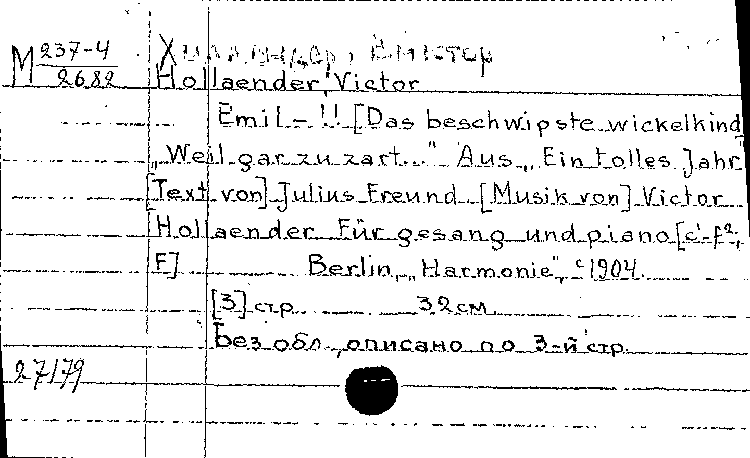 М 237-4
2682
Холлендер, Виктор
Hollaender, Victor
Emil – !! [Das beschwipste wickelkind]
„Weil gar zu zart..." Aus „Ein tolles Jahr"
[Text von] Julius Freund [Musik von] Victor
Hollaender Für gesang und piano [c'-f²;
F] Berlin, „Harmonie", c 1904.
[3] стр. 32 см.
Без обл., описано по 3-й стр.
27/79